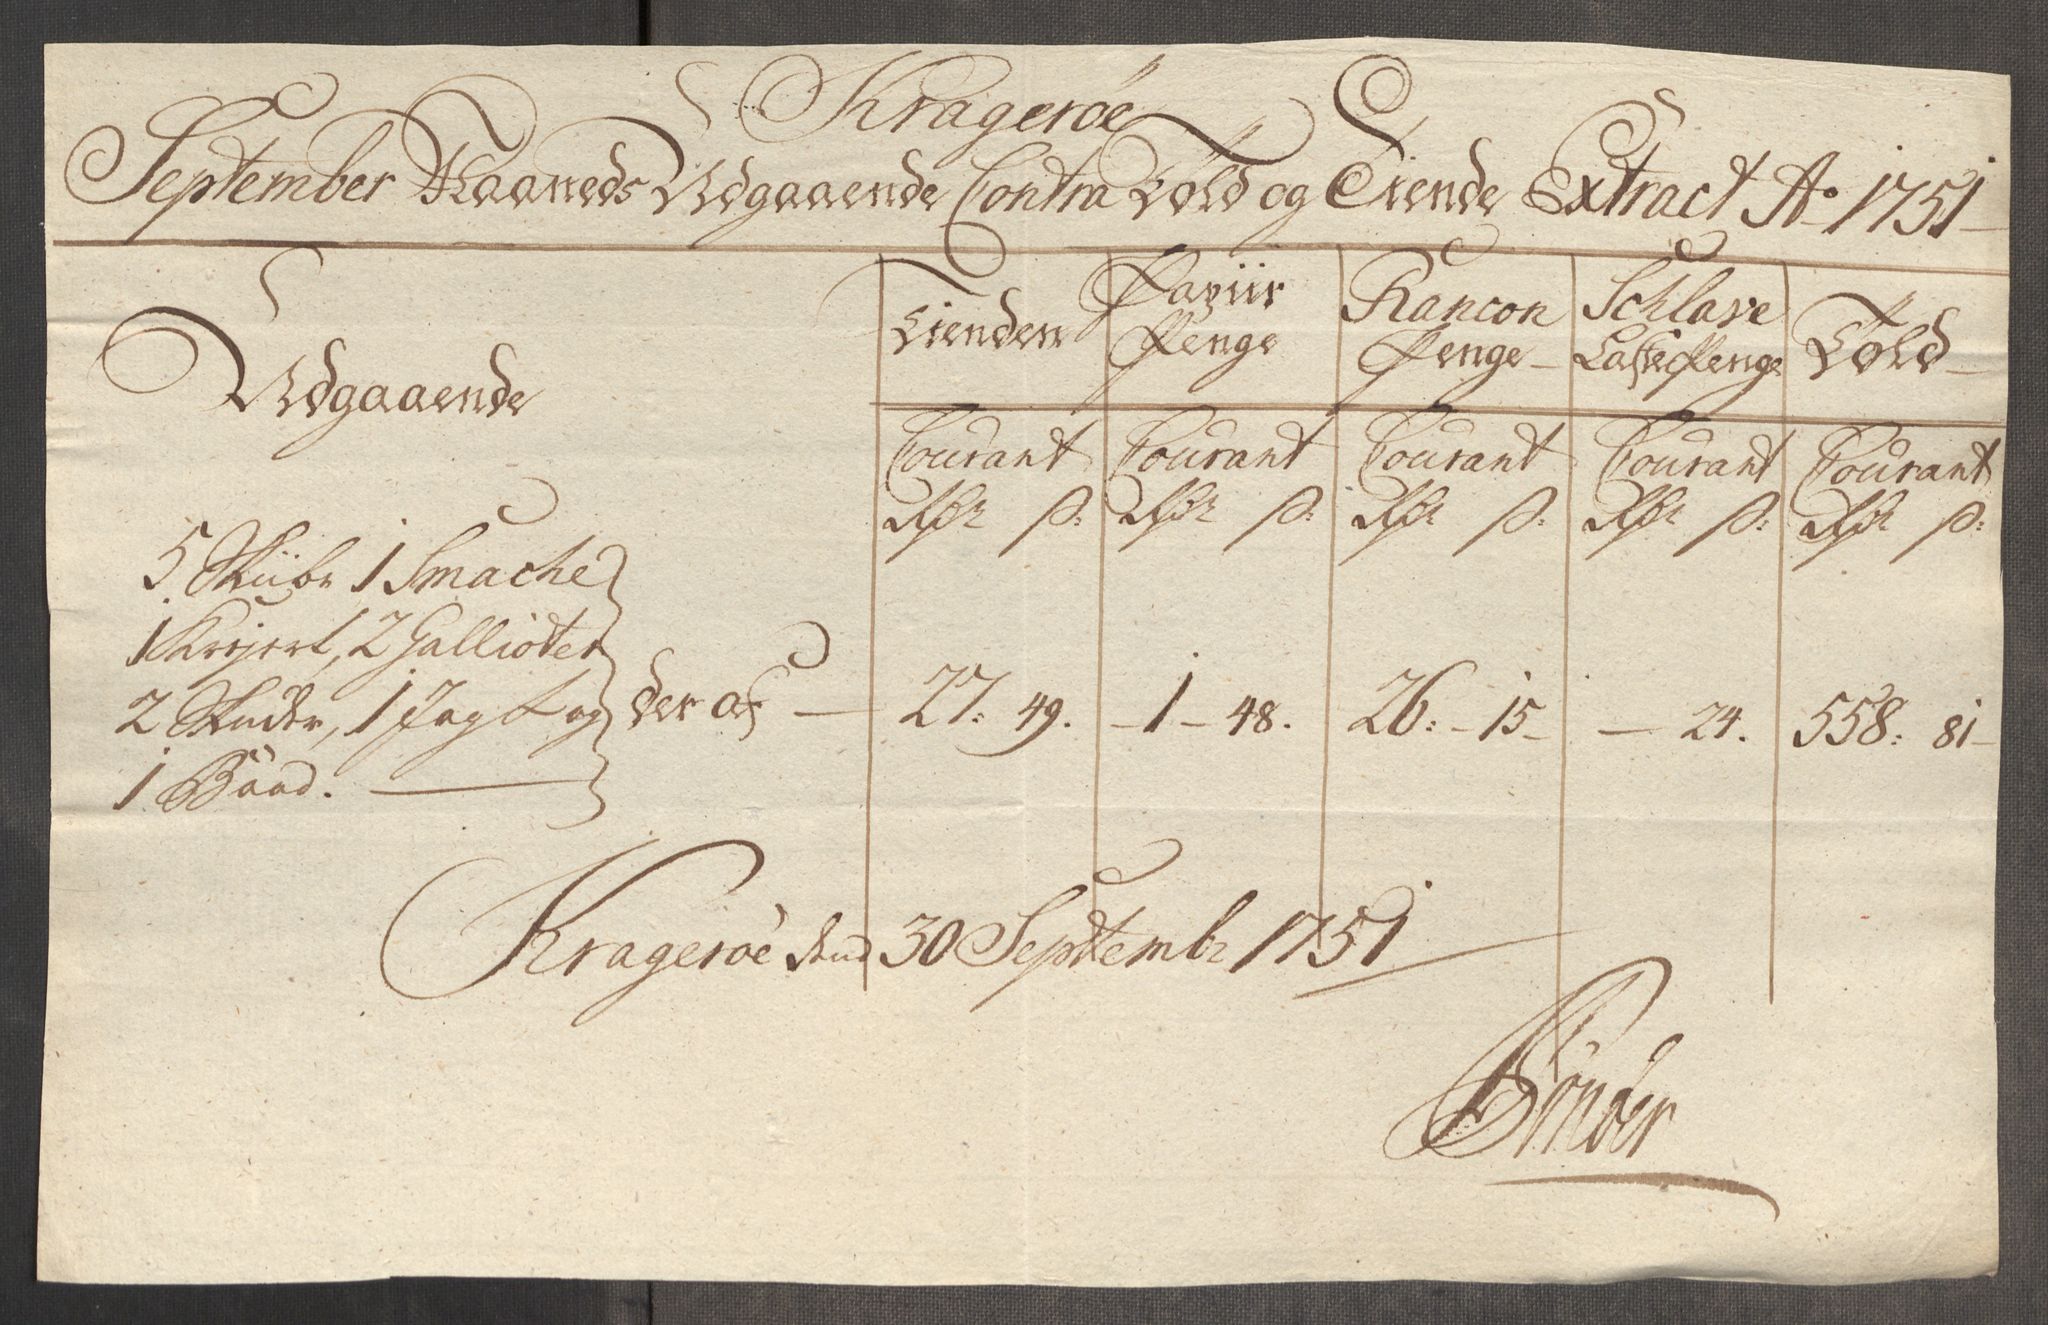 Kragerøe
September Maaneds Udgaaende Contra Told og Tiende Extract Ao 1751
Udgaaende
Tienden
Papiir Penge
Rancon Penge
Schlave Casse Penge
Told
Courant Courant Courant Courant Courant
Rdr ß: Rdr ß: Rdr ß: Rdr ß: Rdr ß:
5 Skibe 1 Smache
1 Krejert, 2 Gallioter
2 Skuder, 1 Jagt og der af 27: 49. 1 48. 26: 15 24. 558: 81
1 Baad.
Kragerøe den 30 Septembr 1751